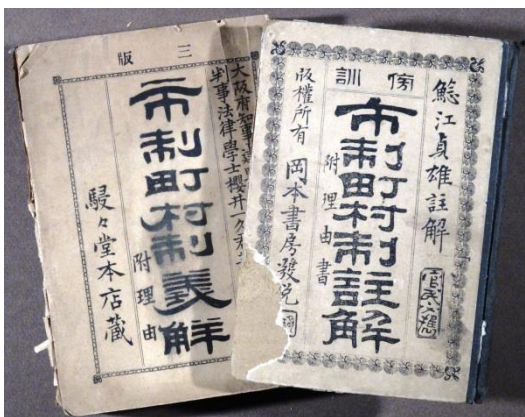 三版
大阪府知事
判事法律學士櫻井一久
市制町村制義解
附理由
駸々堂本店蔵
傍訓
鯰江貞雄註解
官民必携
市制町村制註解
附理由書
版權所有
岡本書房發兌